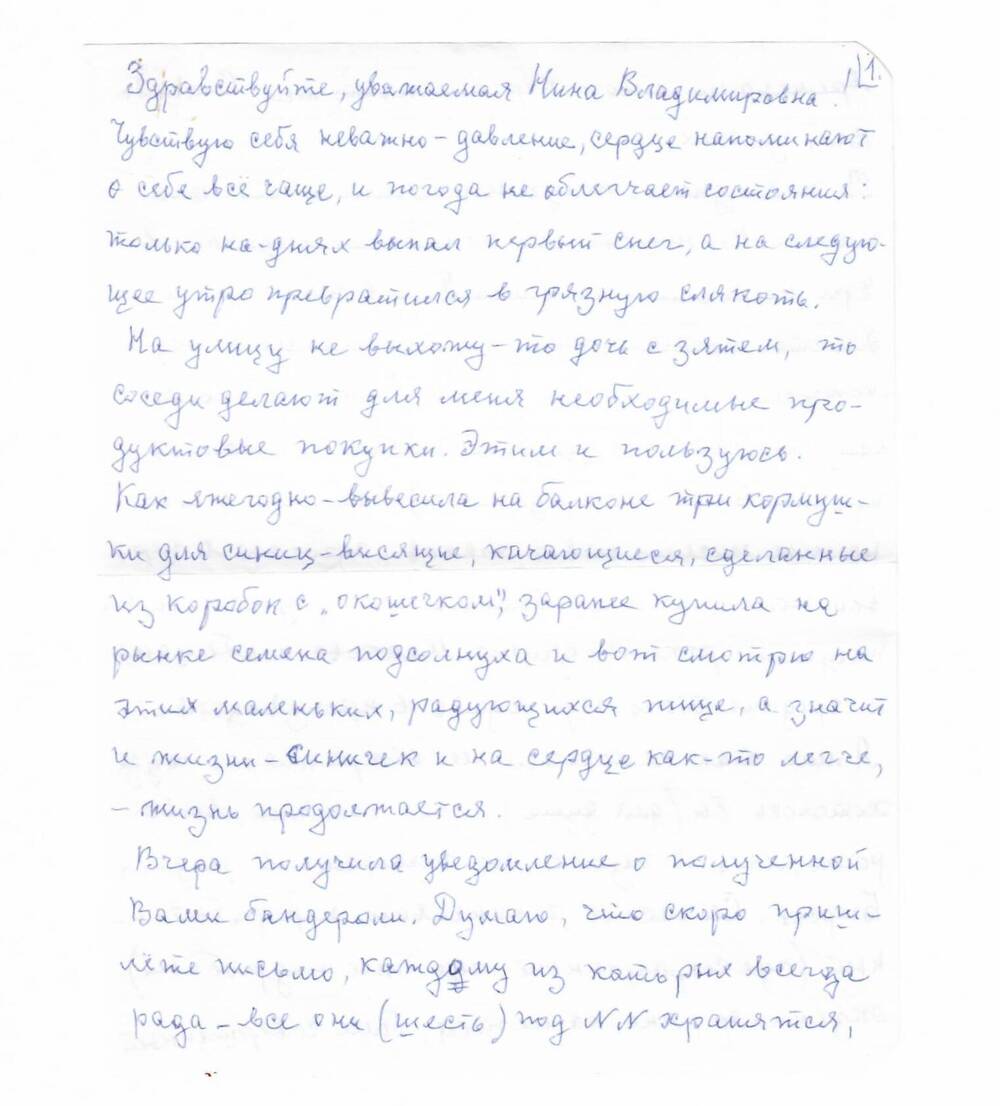 1.
Здравствуйте, уважаемая Нина Владимировна!
Чувствую себя неважно – давление, сердце напоминают
о себе всё чаще, и погода не облегчает состояния:
только на-днях выпал первый снег, а на следую-
щее утро превратился в грязную слякоть.
На улицу не выхожу – то дочь с зятем, то
соседи делают для меня необходимые про-
дуктовые покупки. Этим и пользуюсь.
Как яжегодно – вывесила на балконе три кормуш-
ки для синиц – висящие, качающиеся, сделанные
из коробок с „окошечком", заранее купила на
рынке семена подсолнуха и вот смотрю на
этих маленьких, радующихся пище, а значит
и жизни – синичек и на сердце как-то легче,
– жизнь продолжается.
Вчера получила уведомление о полученной
Вами бандероли. Думаю, что скоро пришл-
лёте письмо, каждому из которых всегда
рада – все они (шесть) под NN хранятся,